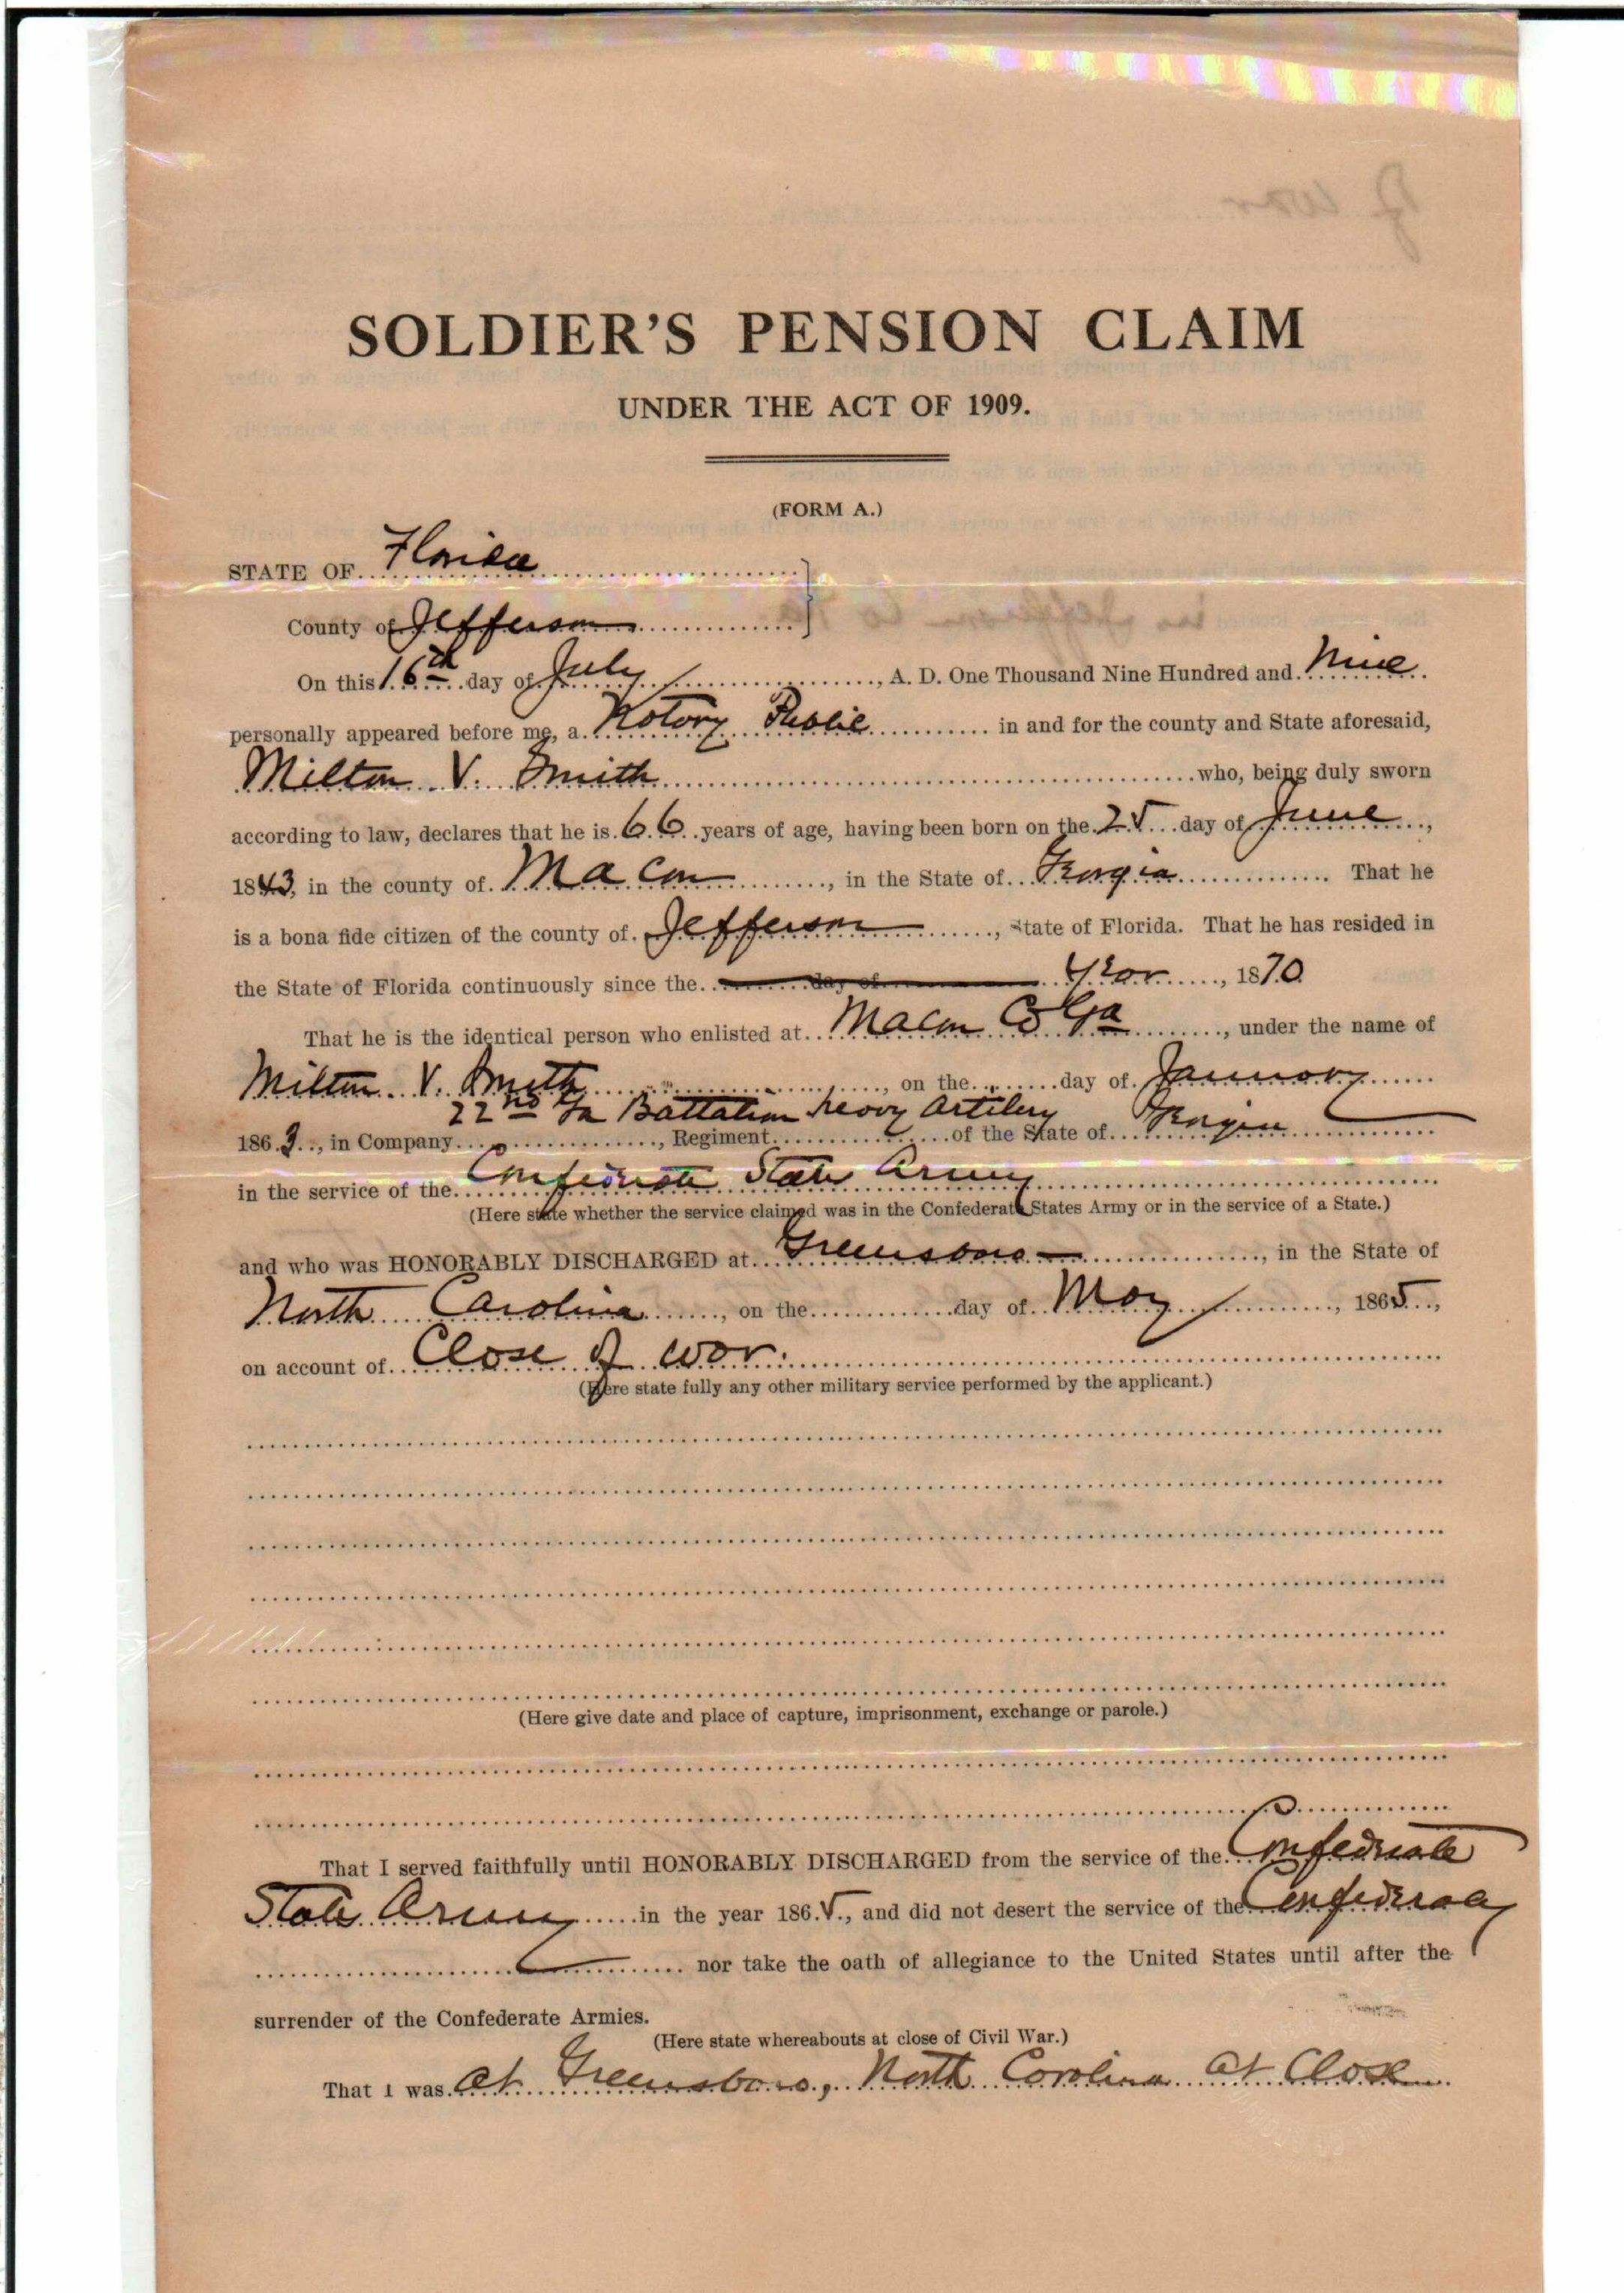 SOLDIER'S PENSION CLAIM
UNDER THE ACT OF 1909.
(FORM A.)
STATE OF Florida
County of Jefferson
On this 16th day of July, A. D. One Thousand Nine Hundred and Nine
personally appeared before me, a Notory Public in and for the county and State aforesaid,
Milton V. Smith who, being duly sworn
according to law, declares that he is 66 years of age, having been born on the 25 day of June,
1843, in the county of Macon, in the State of Georgia. That he
is a bona fide citizen of the county of Jefferson, State of Florida. That he has resided in
the State of Florida continuously since the day of year, 1870
That he is the identical person who enlisted at Macon Co Ga, under the name of
Milton V. Smith, on the day of January
22nd Ga Battalion heavy Artilery Georgia
1863, in Company, Regiment of the State of
in the service of the Confederate States Army
(Here state whether the service claimed was in the Confederate States Army or in the service of a State.)
and who was HONORABLY DISCHARGED at Greensboro, in the State of
North Carolina, on the day of May, 1865,
on account of Close of war.
(Here state fully any other military service performed by the applicant.)
(Here give date and place of capture, imprisonment, exchange or parole.)
That I served faithfully until HONORABLY DISCHARGED from the service of the Confederate
States Army in the year 1865, and did not desert the service of the Confederacy
nor take the oath of allegiance to the United States until after the
surrender of the Confederate Armies.
(Here state whereabouts at close of Civil War.)
That I was at Greensboro, North Carolina at Close